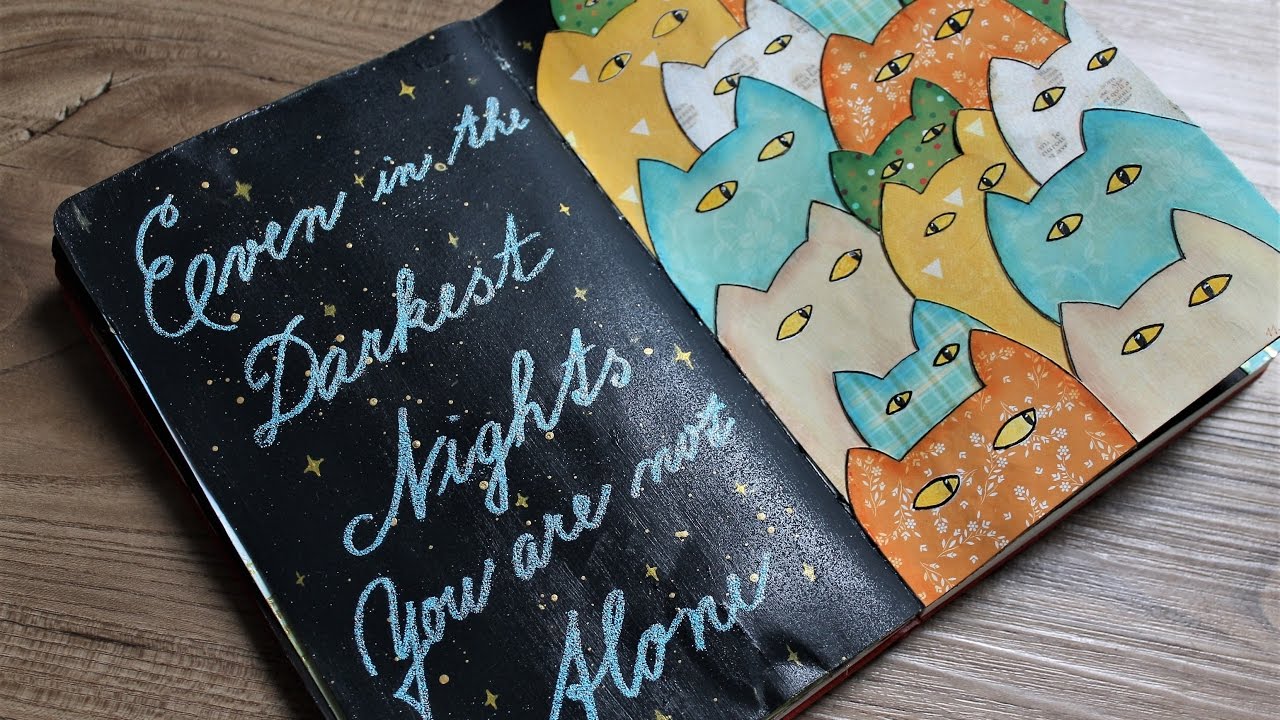 Even in the
Darkest
Nights
You are not
Alone